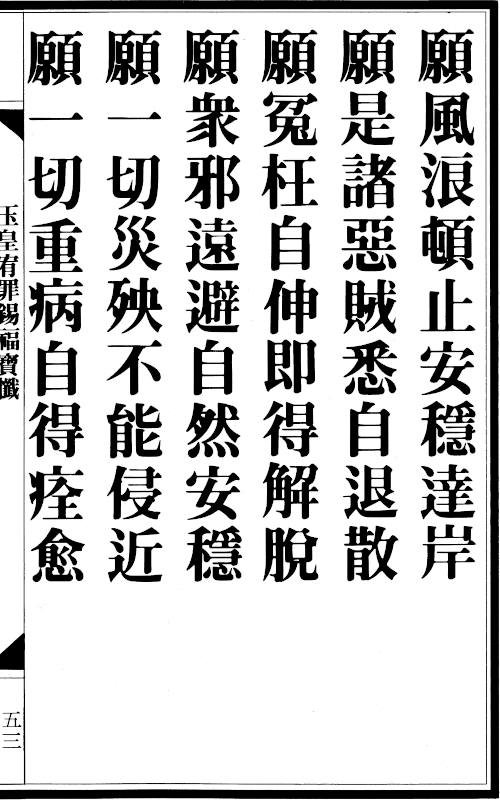 願風浪頓止安穩達岸
願是諸惡賊悉自退散
願冤枉自伸即得解脫
願衆邪遠避自然安穩
願一切災殃不能侵近
願一切重病自得痊愈
玉皇宥罪錫福寶懺
五三